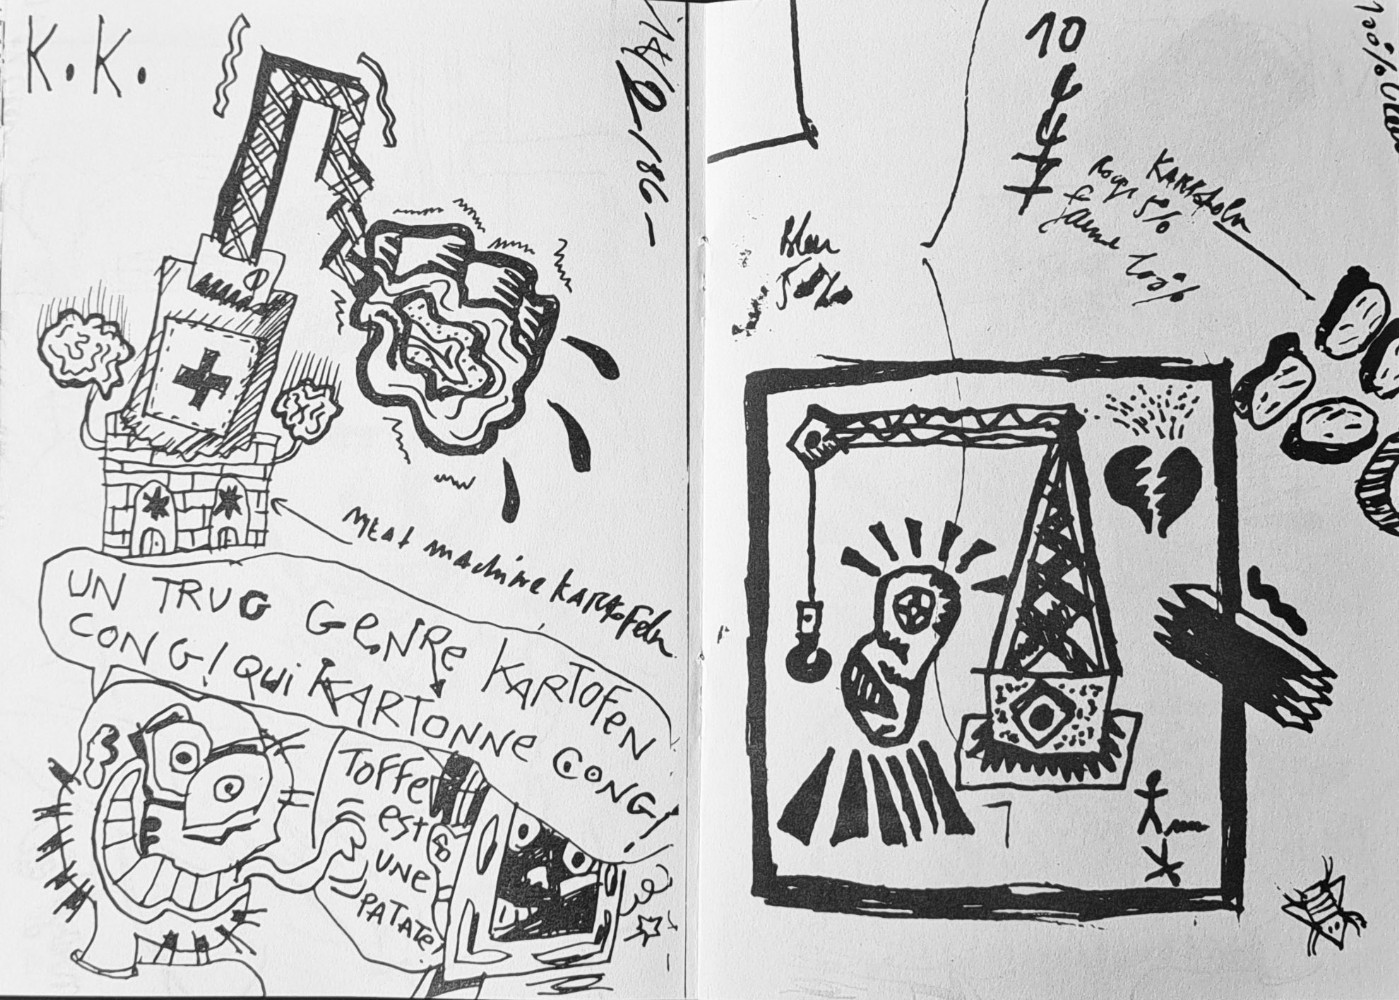 K. K.
MEAt machine KARtoFeln
UN TRUG GENRE KARTOFEN
CONG! qui KARTONNE CONG!
TOFFE
est
UNE
PATATE
10
KARtofeln
5%
Jaune 100%
Bleu
50%